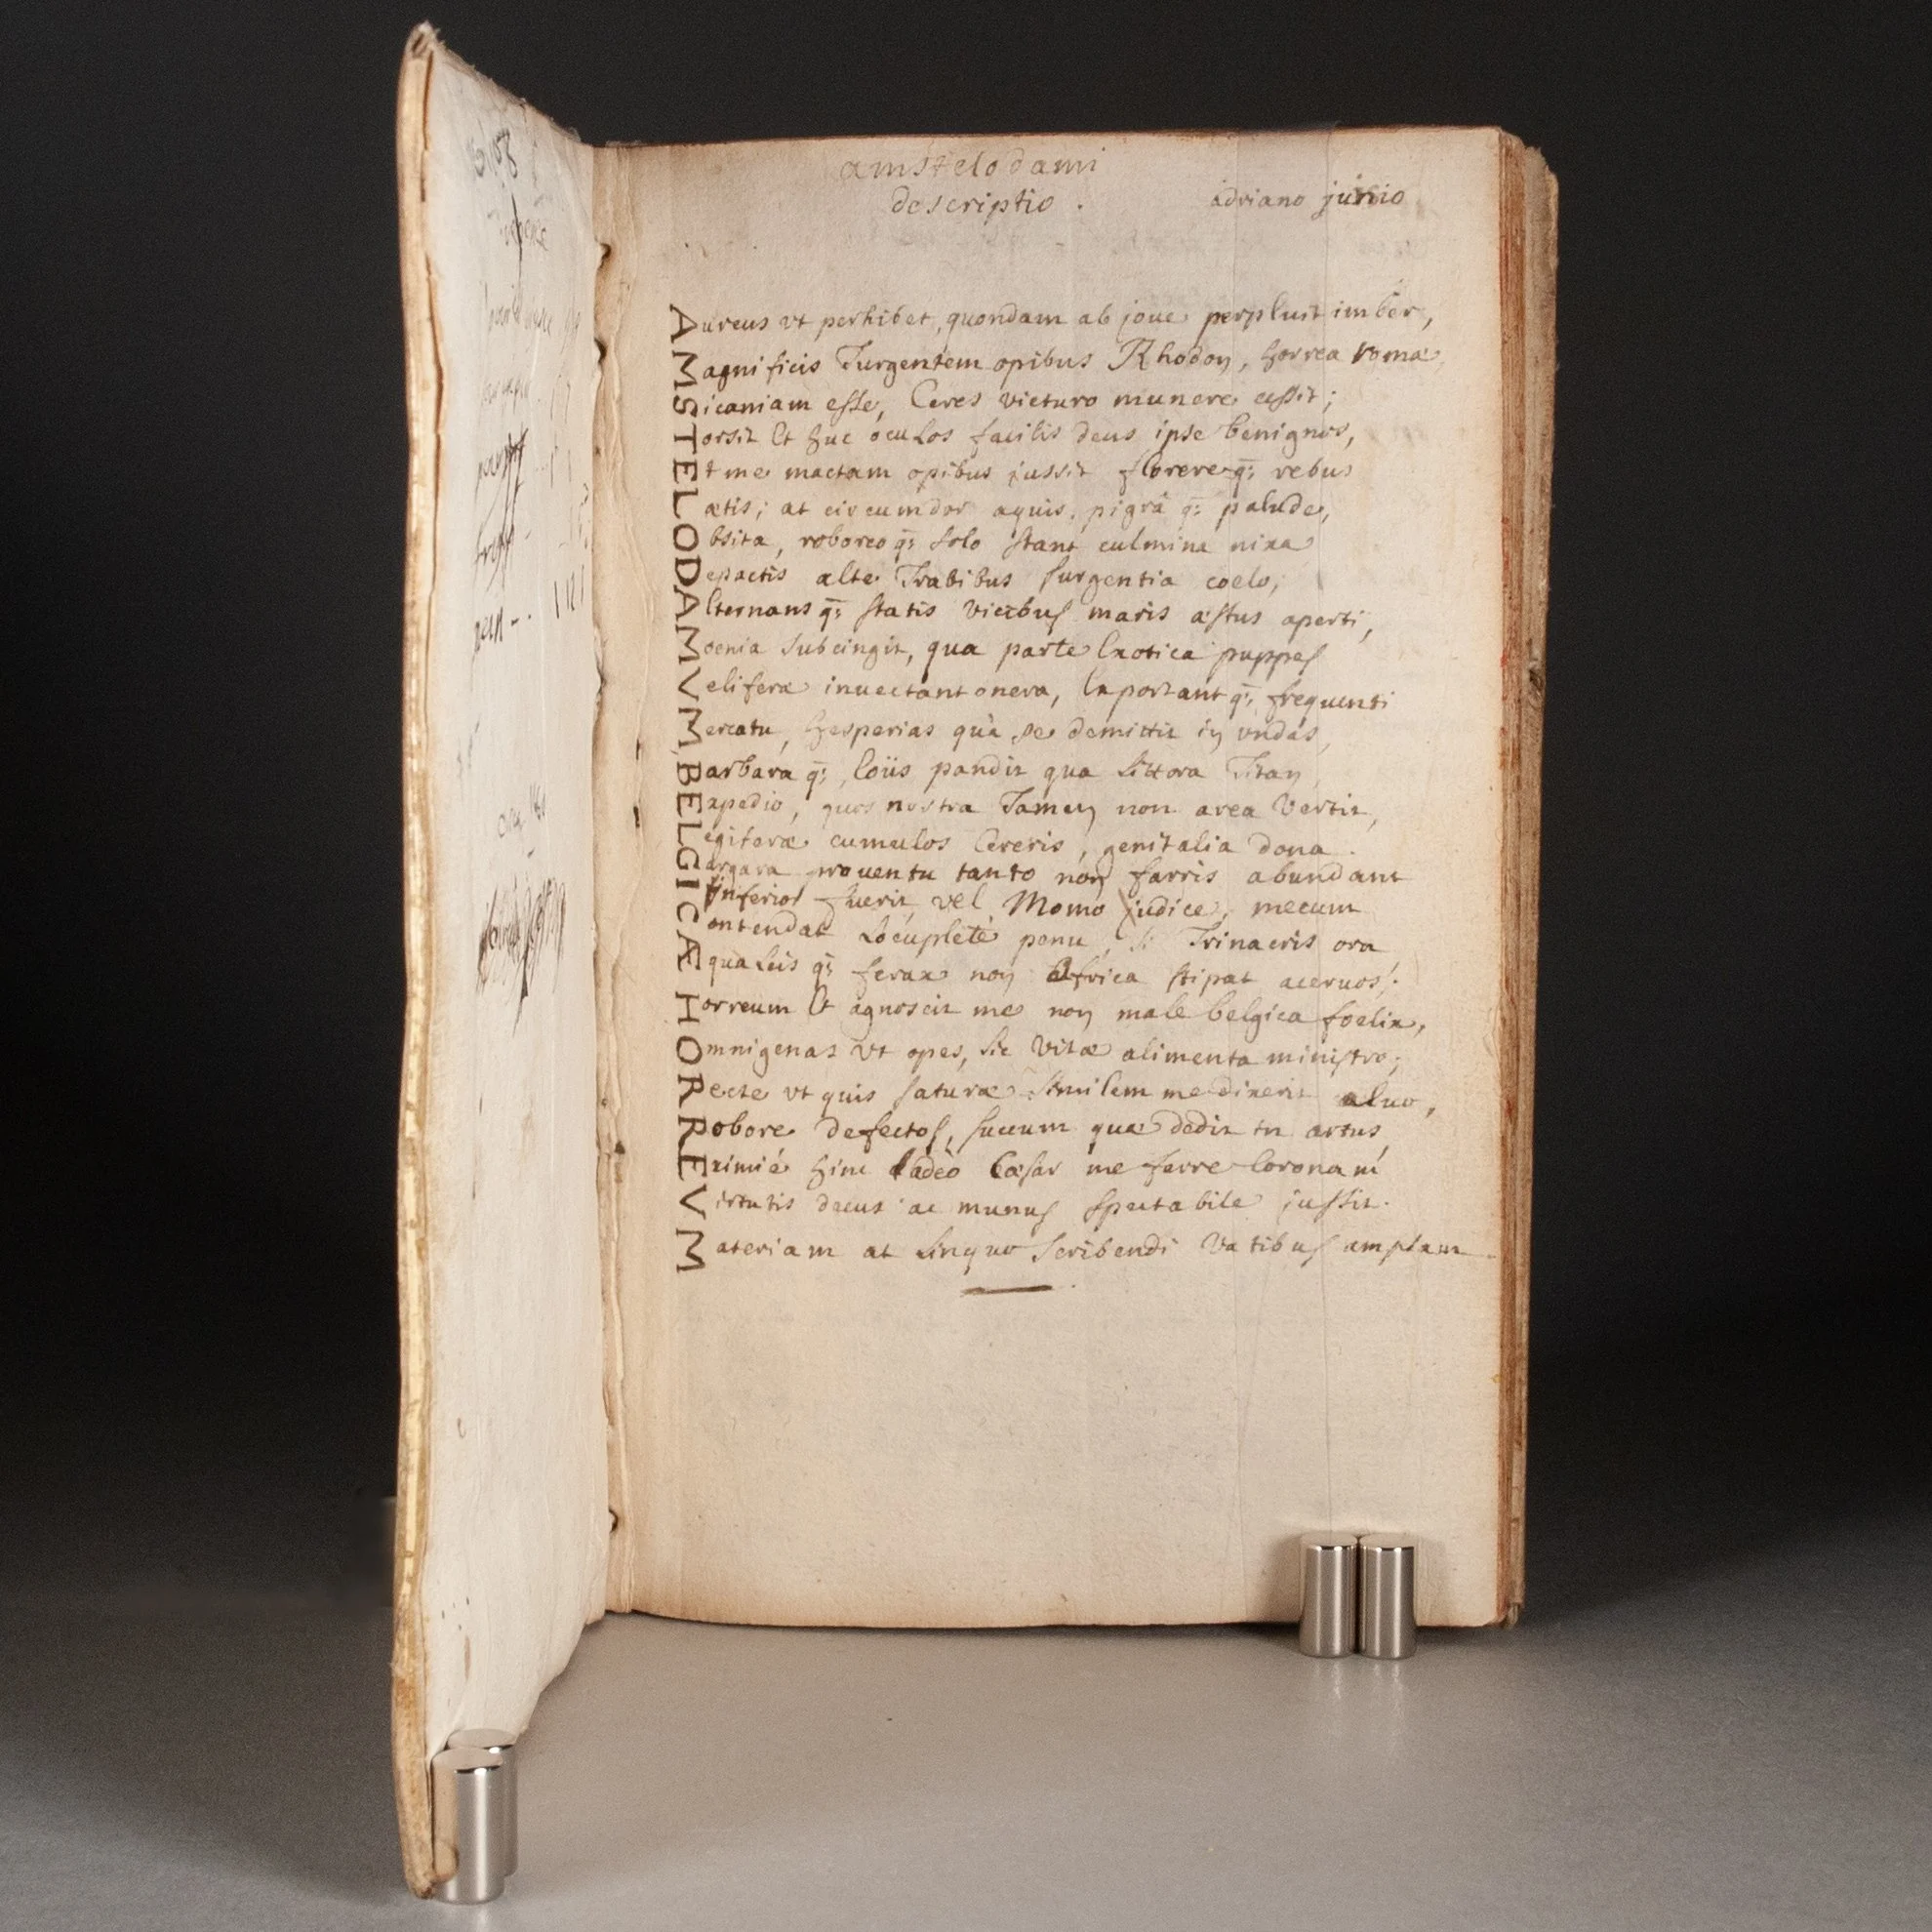 amstelodami
descriptio .
adriano junio
Aureus vt perhibet, quondam ab joue perpluit imber,
Magnificis Turgentem opibus Rhodon, horrea romæ
Sicaniam esse, Ceres victuro munere cessit;
Torsit Et huc oculos facilis deus ipse benignos,
Et me mactam opibus jussit florereq; rebus
Lætis; at circumdor aquis, pigrâ q; palude,
Obsita, roboreo q; solo stant culmina nixa
Depactis alte Trabibus surgentia coelo,
Alternans q; statis vicibus maris æstus aperti,
Moenia subcingit, qua parte Exotica puppes
Veliferæ inuectant onera, Exportant q; frequenti
Mercatu, hesperias quà se demittit in vndas,
Barbara q; Eoüs pandit qua littora Titan
Expedio, quos nostra Tamen non area vertit,
Legiferæ cumulos Cereris, genitalia dona .
Gargara prouentu tanto non farris abundant
Inferior fuerit, vel Momo judice, mecum
Contendat Locuplete penu, si Trinacris ora
Æqualeis q; ferax non Africa stipat aceruos;
Horreum Et agnoscit me non male belgica foelix,
Omnigenas vt opes, sic vitæ alimenta ministro;
Recte vt quis saturæ similem me dixerit aluo,
Robore defectos, succum quæ dedit in artus,
Eximiè hinc adeò Cæsar me ferre Coronam
Virtutis decus ac munus spectabile jussit.
Materiam at Linquo scribendi Vatibus amplam